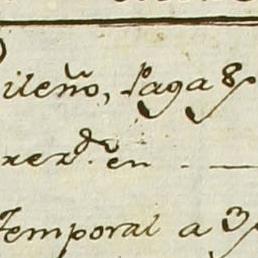 ileño, Paga 8
rexd. en
Temporal a 3